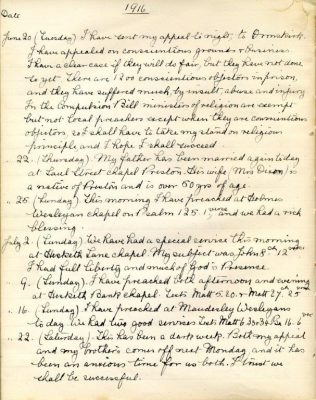 1916
Date
June 20 (Tuesday) I have sent my appeal to night to Ormskirk.
I have appealed on conscientious grounds & Business.
I have a clear case if they will do fair, but they have not done
so yet. There are 1200 conscientious objectors in prison,
and they have suffered much, by insult, abuse and injury.
In the Compulsion Bill ministers of religion are exempt
but not Local preachers except when they are conscientious
objectors, so I shall have to take my stand on religious
principle, and I hope I shall succeed.
22. (Thursday) My father has been married again today
at Saul Street chapel Preston. His wife, (Mrs Dixon) is
a native of Preston and is over 50 yrs of age.
25 (Sunday) This morning I have preached at Holmes
Wesleyan chapel on Psalm 125 1st verse and we had a rich
blessing.
July 2. (Sunday) We have had a special service this morning
at Hesketh Lane chapel. My subject was, John 8th 12 verse.
I had full liberty and much of God's Presence.
9. (Sunday) I have preached both afternoon and evening
at Hesketh Bank chapel. Texts Matt 5. 20. & Matt 27. 25
" 16. (Sunday) I have preached at Mawdesley Wesleyans
to day. We had two good services. Texts Matt 6 33 & 34 Psa 16. 6 ver
" 22. (Saturday) This has been a dark week. Both my appeal
and my brother's comes off next Monday, and it has
been an anxious time for us both. I trust we
shall be successful.